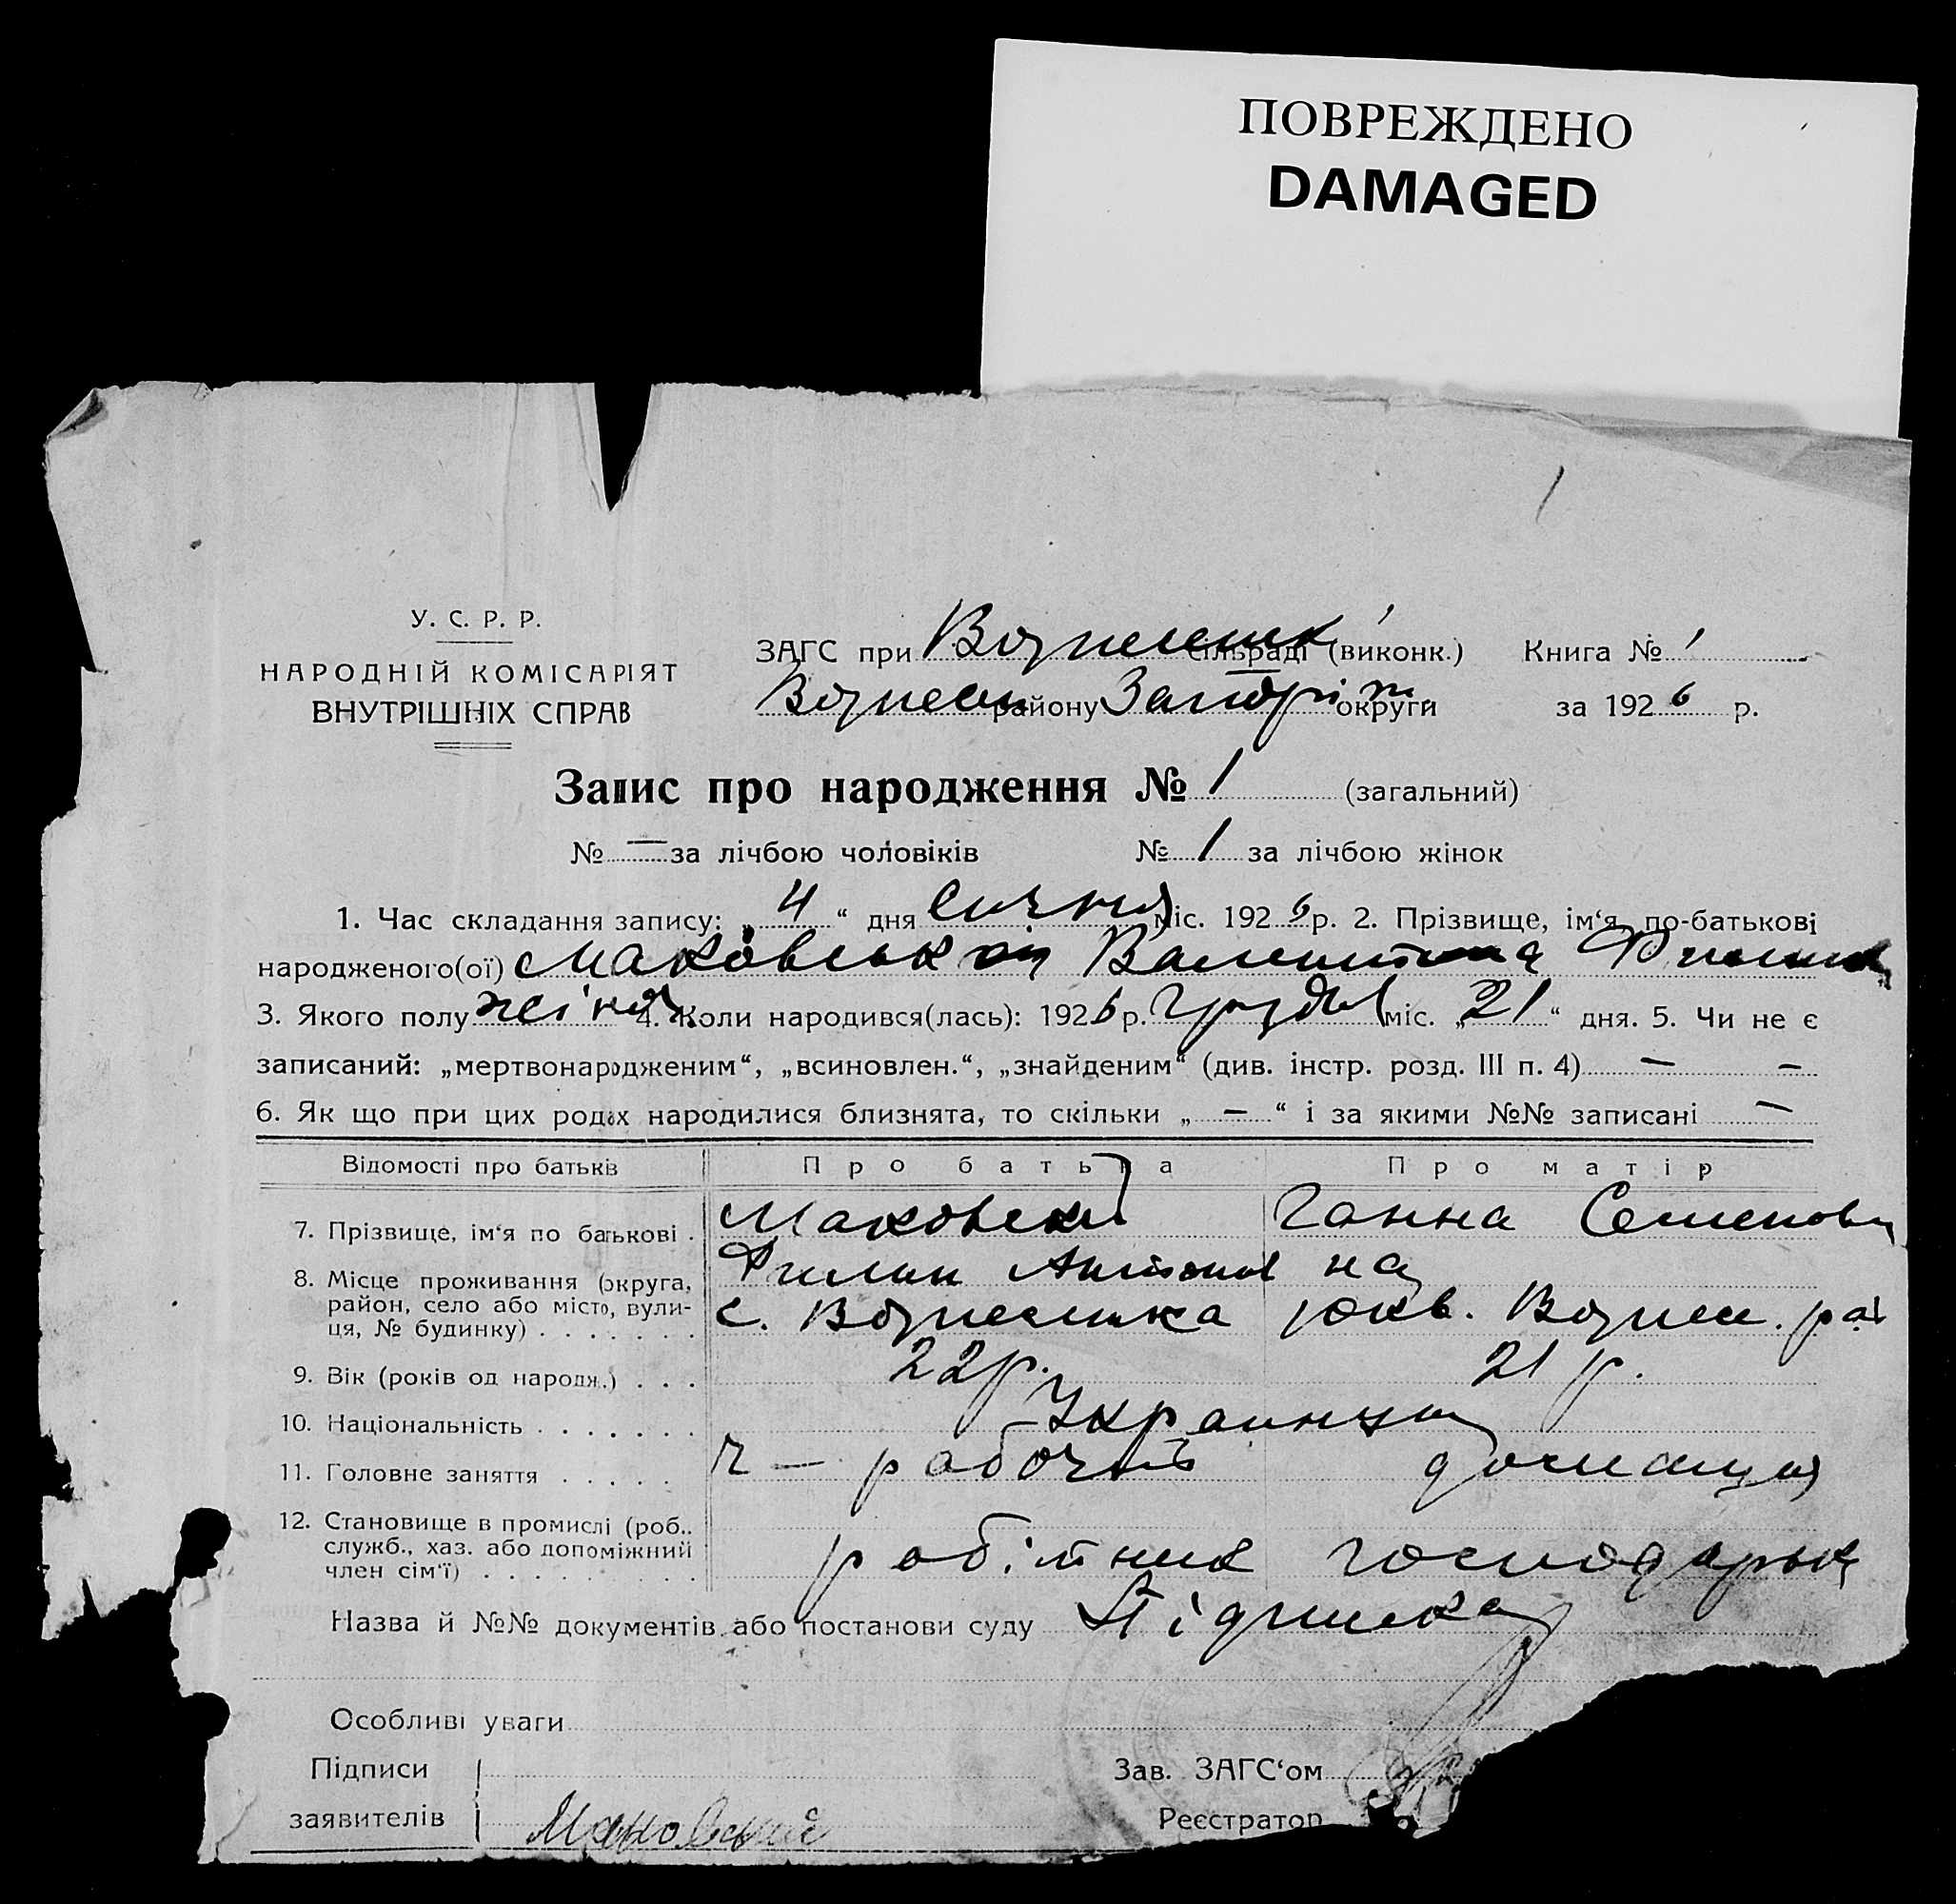 ПОВРЕЖДЕНО
DAMAGED
У. С. Р. Р.
НАРОДНІЙ КОМІСАРІЯТ
ВНУТРІШНІХ СПРАВ
ЗАГС при Вознесенск сільраді (виконк.) Книга № 1
Вознесен району Запоріж округи за 1926 р.
Запис про народження № 1 (загальний)
№ — за лічбою чоловіків № 1 за лічбою жінок
1. Час складання запису: „4“ дня Січня міс. 1926 р. 2. Прізвище, ім‘я, по-батькові
народженого(ої) Маковськ Валентина
3. Якого полу жіноч. 4. Коли народився(лась): 1926 р. Грудня міс. „21“ дня. 5. Чи не є
записаний: „мертвонародженим“, „всиновлен.“, „знайденим“ (див. інстр. розд. III п. 4) — —
6. Як що при цих родах народилися близнята, то скільки „—“ і за якими №№ записані —
Відомості про батьків Про батька Про матір
7. Прізвище, ім‘я по батькові . Маковский Ганна Семеновн
Филип Антонов на
8. Місце проживання (округа,
район, село або місто, вули-
ця, № будинку) . . . . . . . с. Вознесенка Вознес. рай
9. Вік (років од народж.) . . . 22 р. 21 р.
10. Національність . . . . . . . Украинци
11. Головне заняття . . . . . Ч — рабочий домашня
12. Становище в промислі (роб..
служб., хаз. або допоміжний
член сім‘ї) . . . . . . . . . робітник господарька
Назва й №№ документів або постанови суду Підписка
Особливі уваги
Підписи Зав. ЗАГС‘ом
заявителів Маковский Реєстратор